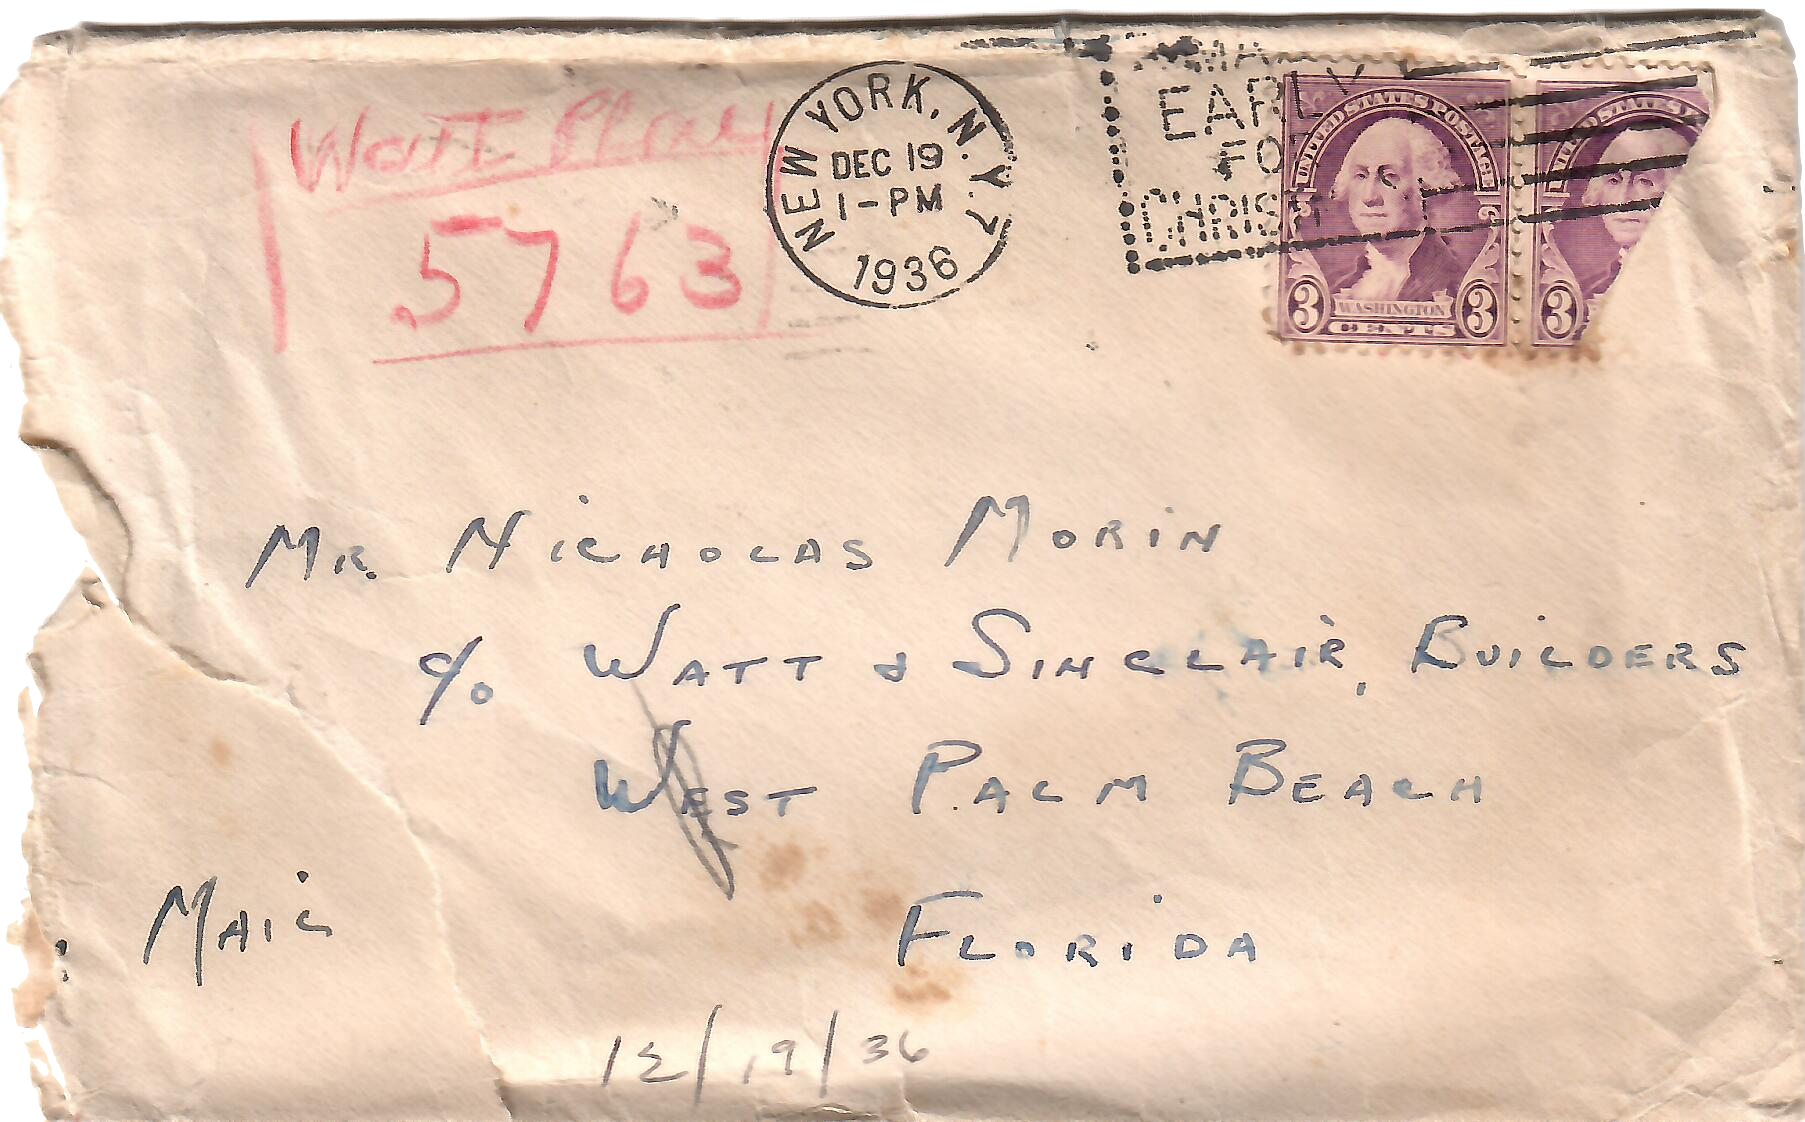 Watt
5763
NEW YORK, N.Y. 7
DEC 19
1-PM
1936
MA
EARLY
FO
CHRIST
UNITED STATES POSTAGE
3 WASHINGTON 3
CENTS
UNITED STATES P
3
MR. NICHOLAS MORIN
c/o WATT & SINCLAIR, BUILDERS
WEST PALM BEACH
FLORIDA
MAIL
12/19/36